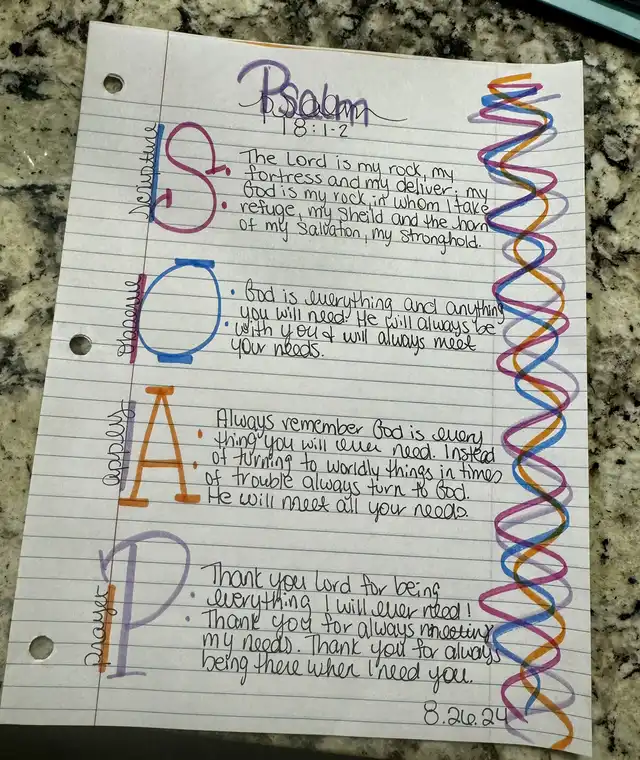 Psalm
18:1-2
Scripture
S
The Lord is my rock, my
fortress and my deliver; my
God is my rock, in whom I take
refuge, my sheild and the horn
of my salvation, my stronghold.
Observe
O
God is everything and anything
you will need. He will always be
with you & will always meet
your needs.
Apply
A
Always remember God is every
thing you will ever need. Instead
of turning to worldly things in times
of trouble always turn to God.
He will meet all your needs.
Prayer
P
Thank you Lord for being
everything I will ever need!
Thank you for always meeting
my needs. Thank you for always
being there when I need you.
8.26.24